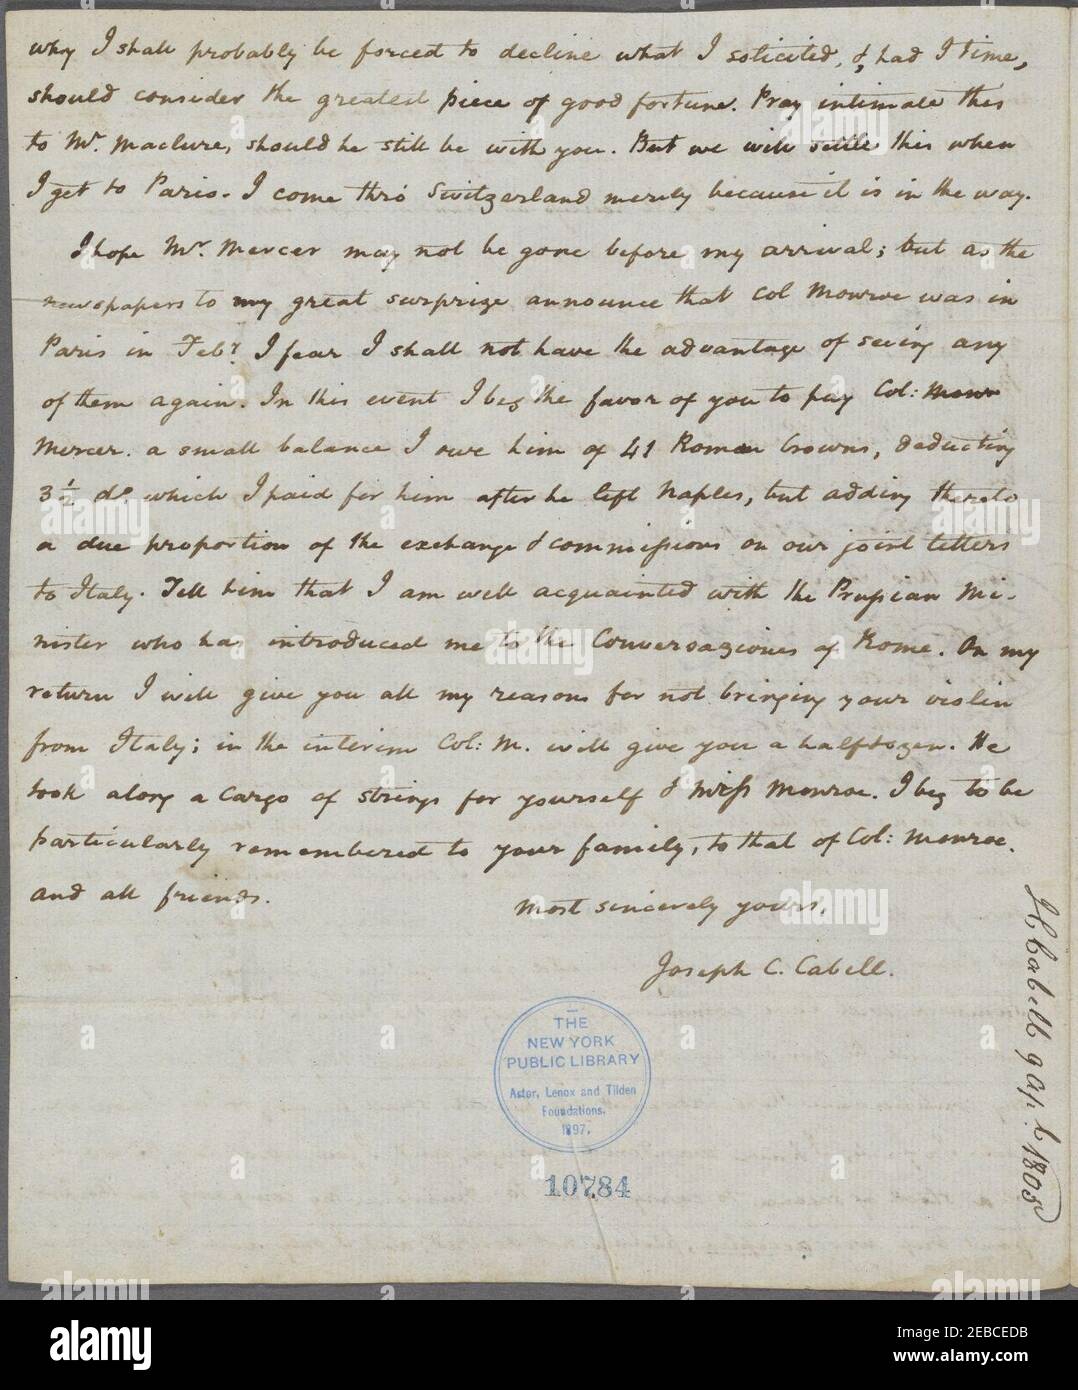 why I shall probably be forced to decline what I solicited, &, had I time,
should consider the greatest piece of good fortune. Pray intimate this
to Mr. Maclure, should he still be with you. But we will settle this when
I get to Paris. I come thro' Switzerland merely because it is in the way.
I hope Mr. Mercer may not be gone before my arrival; but as the
newspapers to my great surprize announce that Col Monroe was in
Paris in Feby. I fear I shall not have the advantage of seeing any
of them again. In this event I beg the favor of you to pay Col: Monr
Mercer. a small balance I owe him of 41 Roman Crowns, deducting
3 1/2 do. which I paid for him after he left Naples, but adding thereto
a due proportion of the exchange & commissions on our joint letters
to Italy. Tell him that I am well acquainted with the Prussian Mi-
nister who has introduced me to the Conversaziones of Rome. On my
return I will give you all my reasons for not bringing your violin
from Italy; in the interim Col: M. will give you a half dozen. He
took along a cargo of strings for yourself & Miss Monroe. I beg to be
particularly remembered to your family, to that of Col: Monroe.
and all friends.
Most sincerely yours,
Joseph C. Cabell.
Cabell 9 Ap.l 1805
THE
NEW YORK
PUBLIC LIBRARY
Astor, Lenox and Tilden
Foundations.
1897.
10784
alamy
Image ID: 2ECBCEDB
www.alamy.com